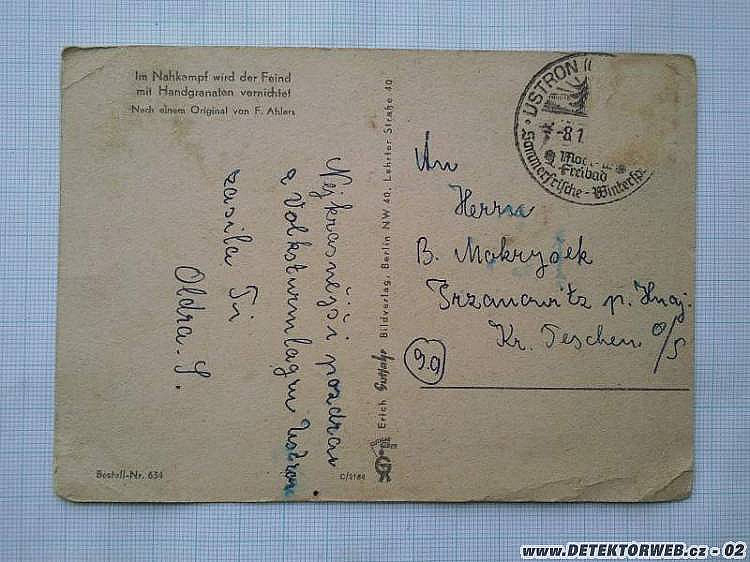 Im Nahkampf wird der Feind
mit Handgranaten vernichtet
Nach einem Original von F. Ahlers
Nejkrasnější pozdrav
z Volksturmlagru Ustron
zasila Ti
Oldra. S.
Bestell-Nr. 634
Erich Gutjahr Bildverlag, Berlin NW 40, Lehrter Straße 40
C/2184
USTRON
-8.1
Moor-u.
Freibad
Sommerfrische - Wintersp.
An
Herrn
B. Mokrysek
Trzanowitz p. Hnoj.
Kr. Teschen O/S
9a
www.DETEKTORWEB.cz - 02